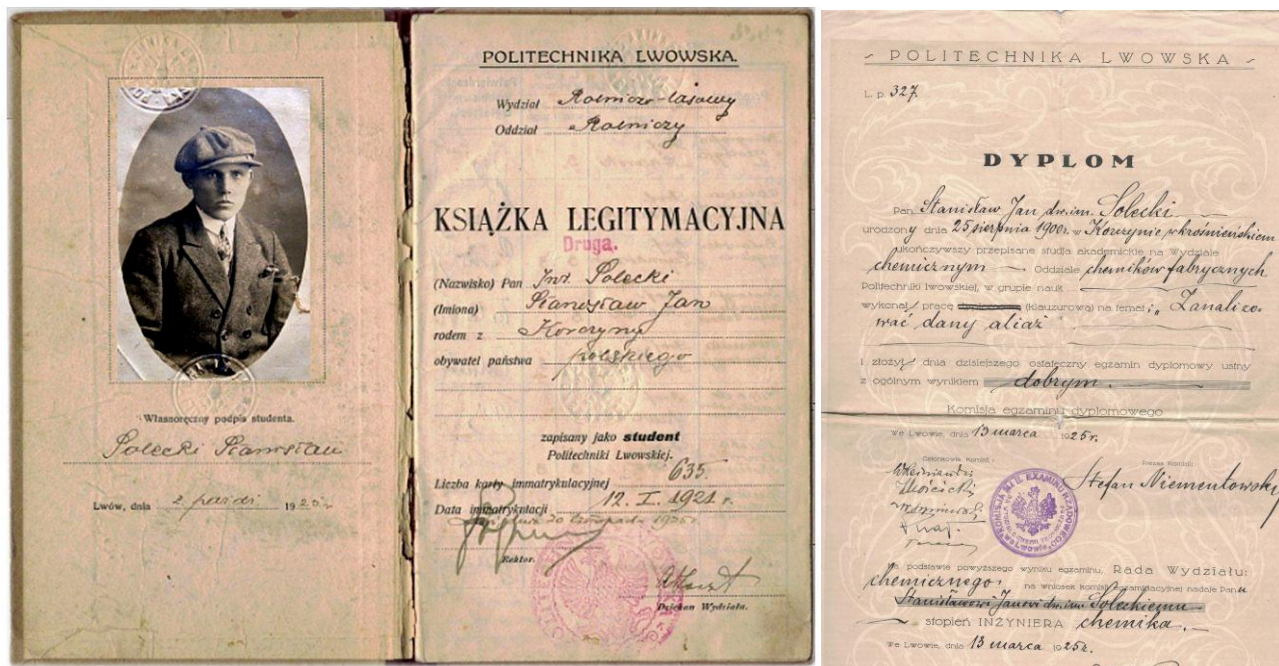 Własnoręczny podpis studenta.
Solecki Stanisław
Lwów, dnia 2 paźdz 1925
POLITECHNIKA LWOWSKA.
Wydział Rolniczo-lasowy
Oddział Rolniczy
KSIĄŻKA LEGITYMACYJNA
Druga.
(Nazwisko) Pan Inż. Solecki
(Imiona) Stanisław Jan
rodem z Korczyny
obywatel państwa polskiego
zapisany jako student
Politechniki Lwowskiej.
Liczba karty immatrykulacyjnej 635.
Data immatrykulacji 12. I. 1921 r.
listopada 1925
Rektor.
Dziekan Wydziału.
POLITECHNIKA LWOWSKA
L. p. 327.
DYPLOM
Pan Stanisław Jan dw. im. Solecki
urodzony dnia 25 sierpnia 1900 r. w Korczynie w krośnieńskiem
ukończywszy przepisane studja akademickie na Wydziale
chemicznym Oddziale chemików fabrycznych
Politechniki lwowskiej, w grupie nauk
wykonał pracę (klauzurową) na temat: „Zanalizo-
wać dany aliaż
i złożył dnia dzisiejszego ostateczny egzamin dyplomowy ustny
z ogólnym wynikiem dobrym.
Komisja egzaminu dyplomowego
We Lwowie, dnia 13 marca 1925 r.
Członkowie Komisji:
Prezes Komisji:
Stefan Niementowski
Na podstawie powyższego wyniku egzaminu, Rada Wydziału:
chemicznego na wniosek komisji egzaminacyjnej nadaje Panu
Stanisławowi Janowi dw. im. Soleckiemu
stopień INŻYNIERA chemika.
We Lwowie, dnia 13 marca 1925 r.